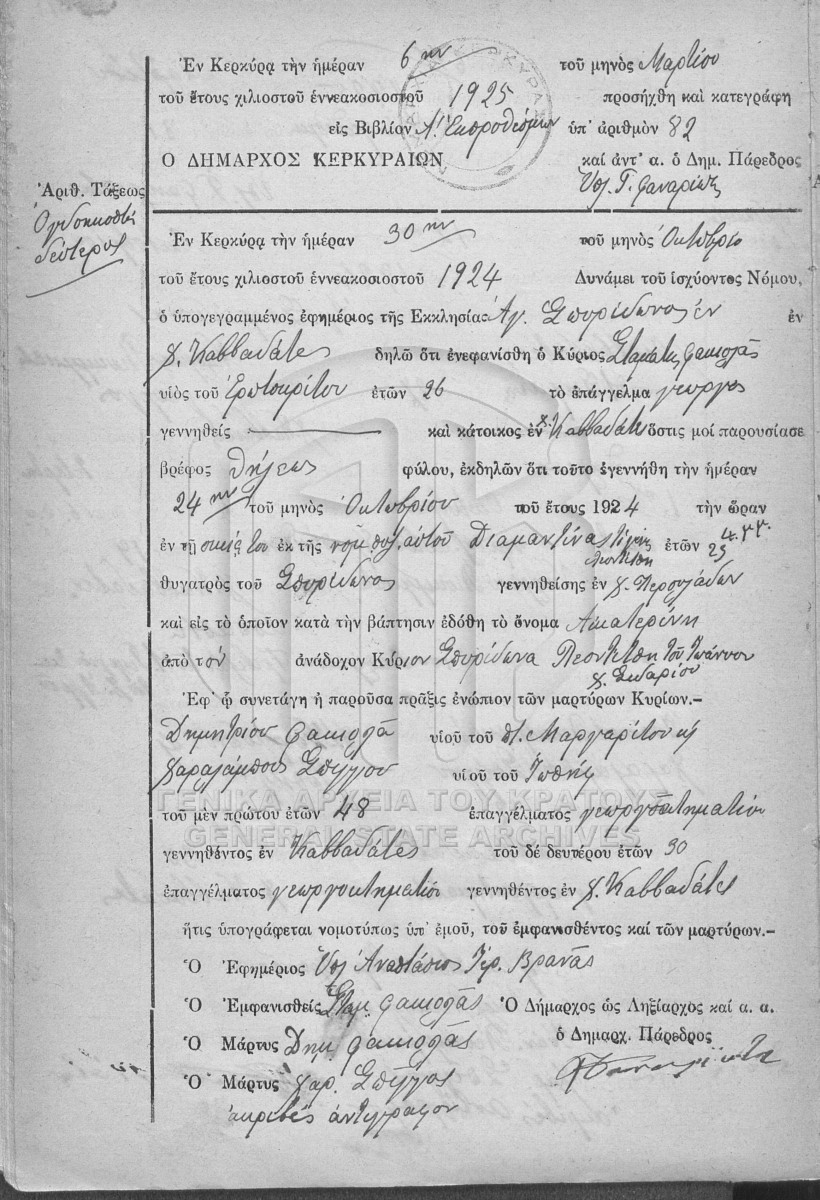 Ἐν Κερκύρᾳ τὴν ἡμέραν 6ην τοῦ μηνὸς Μαρτίου
τοῦ ἔτους χιλιοστοῦ ἐννεακοσιοστοῦ 1925 προσήχθη καὶ κατεγράφη
εἰς Βιβλίον Λ. Ἐκπροθέσμων ὑπ' ἀριθμὸν 82
Ο ΔΗΜΑΡΧΟΣ ΚΕΡΚΥΡΑΙΩΝ καί ἀντ' α. ὁ Δημ. Πάρεδρος
Ὑπ. Γ.
Ἀριθ. Τάξεως
Ὀγδοηκοστὸς
δεύτερος
Ἐν Κερκύρᾳ τὴν ἡμέραν 30ην τοῦ μηνὸς Ὀκτωβρίου
τοῦ ἔτους χιλιοστοῦ ἐννεακοσιοστοῦ 1924 Δυνάμει τοῦ ἰσχύοντος Νόμου,
ὁ ὑπογεγραμμένος ἐφημέριος τῆς Ἐκκλησίας Ἁγ. Σπυρίδωνος ἐν ἐν
χ. Καββαδάτες δηλῶ ὅτι ἐνεφανίσθη ὁ Κύριος Σταμάτης Φακιολᾶς
υἱὸς τοῦ Ἐρωτοκρίτου ἐτῶν 26 τὸ ἐπάγγελμα γεωργὸς
γεννηθείς καὶ κάτοικος ἐν χ. Καββαδάτες ὅστις μοί παρουσίασε
βρέφος θήλεως φύλου, ἐκδηλῶν ὅτι τοῦτο ἐγεννήθη τὴν ἡμέραν
24ην τοῦ μηνὸς Ὀκτωβρίου τοῦ ἔτους 1924 τὴν ὥραν
4 μ.μ.
ἐν τῇ οἰκίᾳ του ἐκ τῆς νομ. συζ. αὐτοῦ Διαμαντίνας ἐτῶν 23
θυγατρὸς τοῦ Σπυρίδωνος γεννηθείσης ἐν χ. Περουλάδων
καὶ εἰς τὸ ὁποῖον κατὰ τὴν βάπτησιν ἐδόθη τὸ ὄνομα Αἰκατερίνη
ἀπὸ τὸν ἀνάδοχον Κύριον Σπυρίδωνα τοῦ Ἰωάννου
χ. Σιδαρίου
Ἐφ' ᾧ συνετάγη ἡ παροῦσα πρᾶξις ἐνώπιον τῶν μαρτύρων Κυρίων.–
Δημητρίου Φακιολᾶ υἱοῦ τοῦ π. Μαργαρίτου κ
Χαραλάμπους Σπίγγου υἱοῦ τοῦ Ἰωσὴφ
τοῦ μὲν πρώτου ἐτῶν 48 ἐπαγγέλματος γεωργοκτηματίου
γεννηθέντος ἐν Καββαδάτες τοῦ δέ δευτέρου ἐτῶν 30
ἐπαγγέλματος γεωργοκτηματίου γεννηθέντος ἐν χ. Καββαδάτες
ἥτις ὑπογράφεται νομοτύπως ὑπ' ἐμοῦ, τοῦ ἐμφανισθέντος καί τῶν μαρτύρων.–
Ὁ Ἐφημέριος Ὑπ. Ἀναστάσιος Ἱερ. Βρανᾶς
Ὁ Ἐμφανισθείς Σταμ. Φακιολᾶς Ὁ Δήμαρχος ὡς Ληξίαρχος καί α. α.
ὁ Δημαρχ. Πάρεδρος
Ὁ Μάρτυς Δημ. Φακιολᾶς
Ὁ Μάρτυς Χαρ. Σπίγγος
ἀκριβὲς ἀντίγραφον
ΓΕΝΙΚΑ ΑΡΧΕΙΑ ΤΟΥ ΚΡΑΤΟΥΣ
GENERAL STATE ARCHIVES